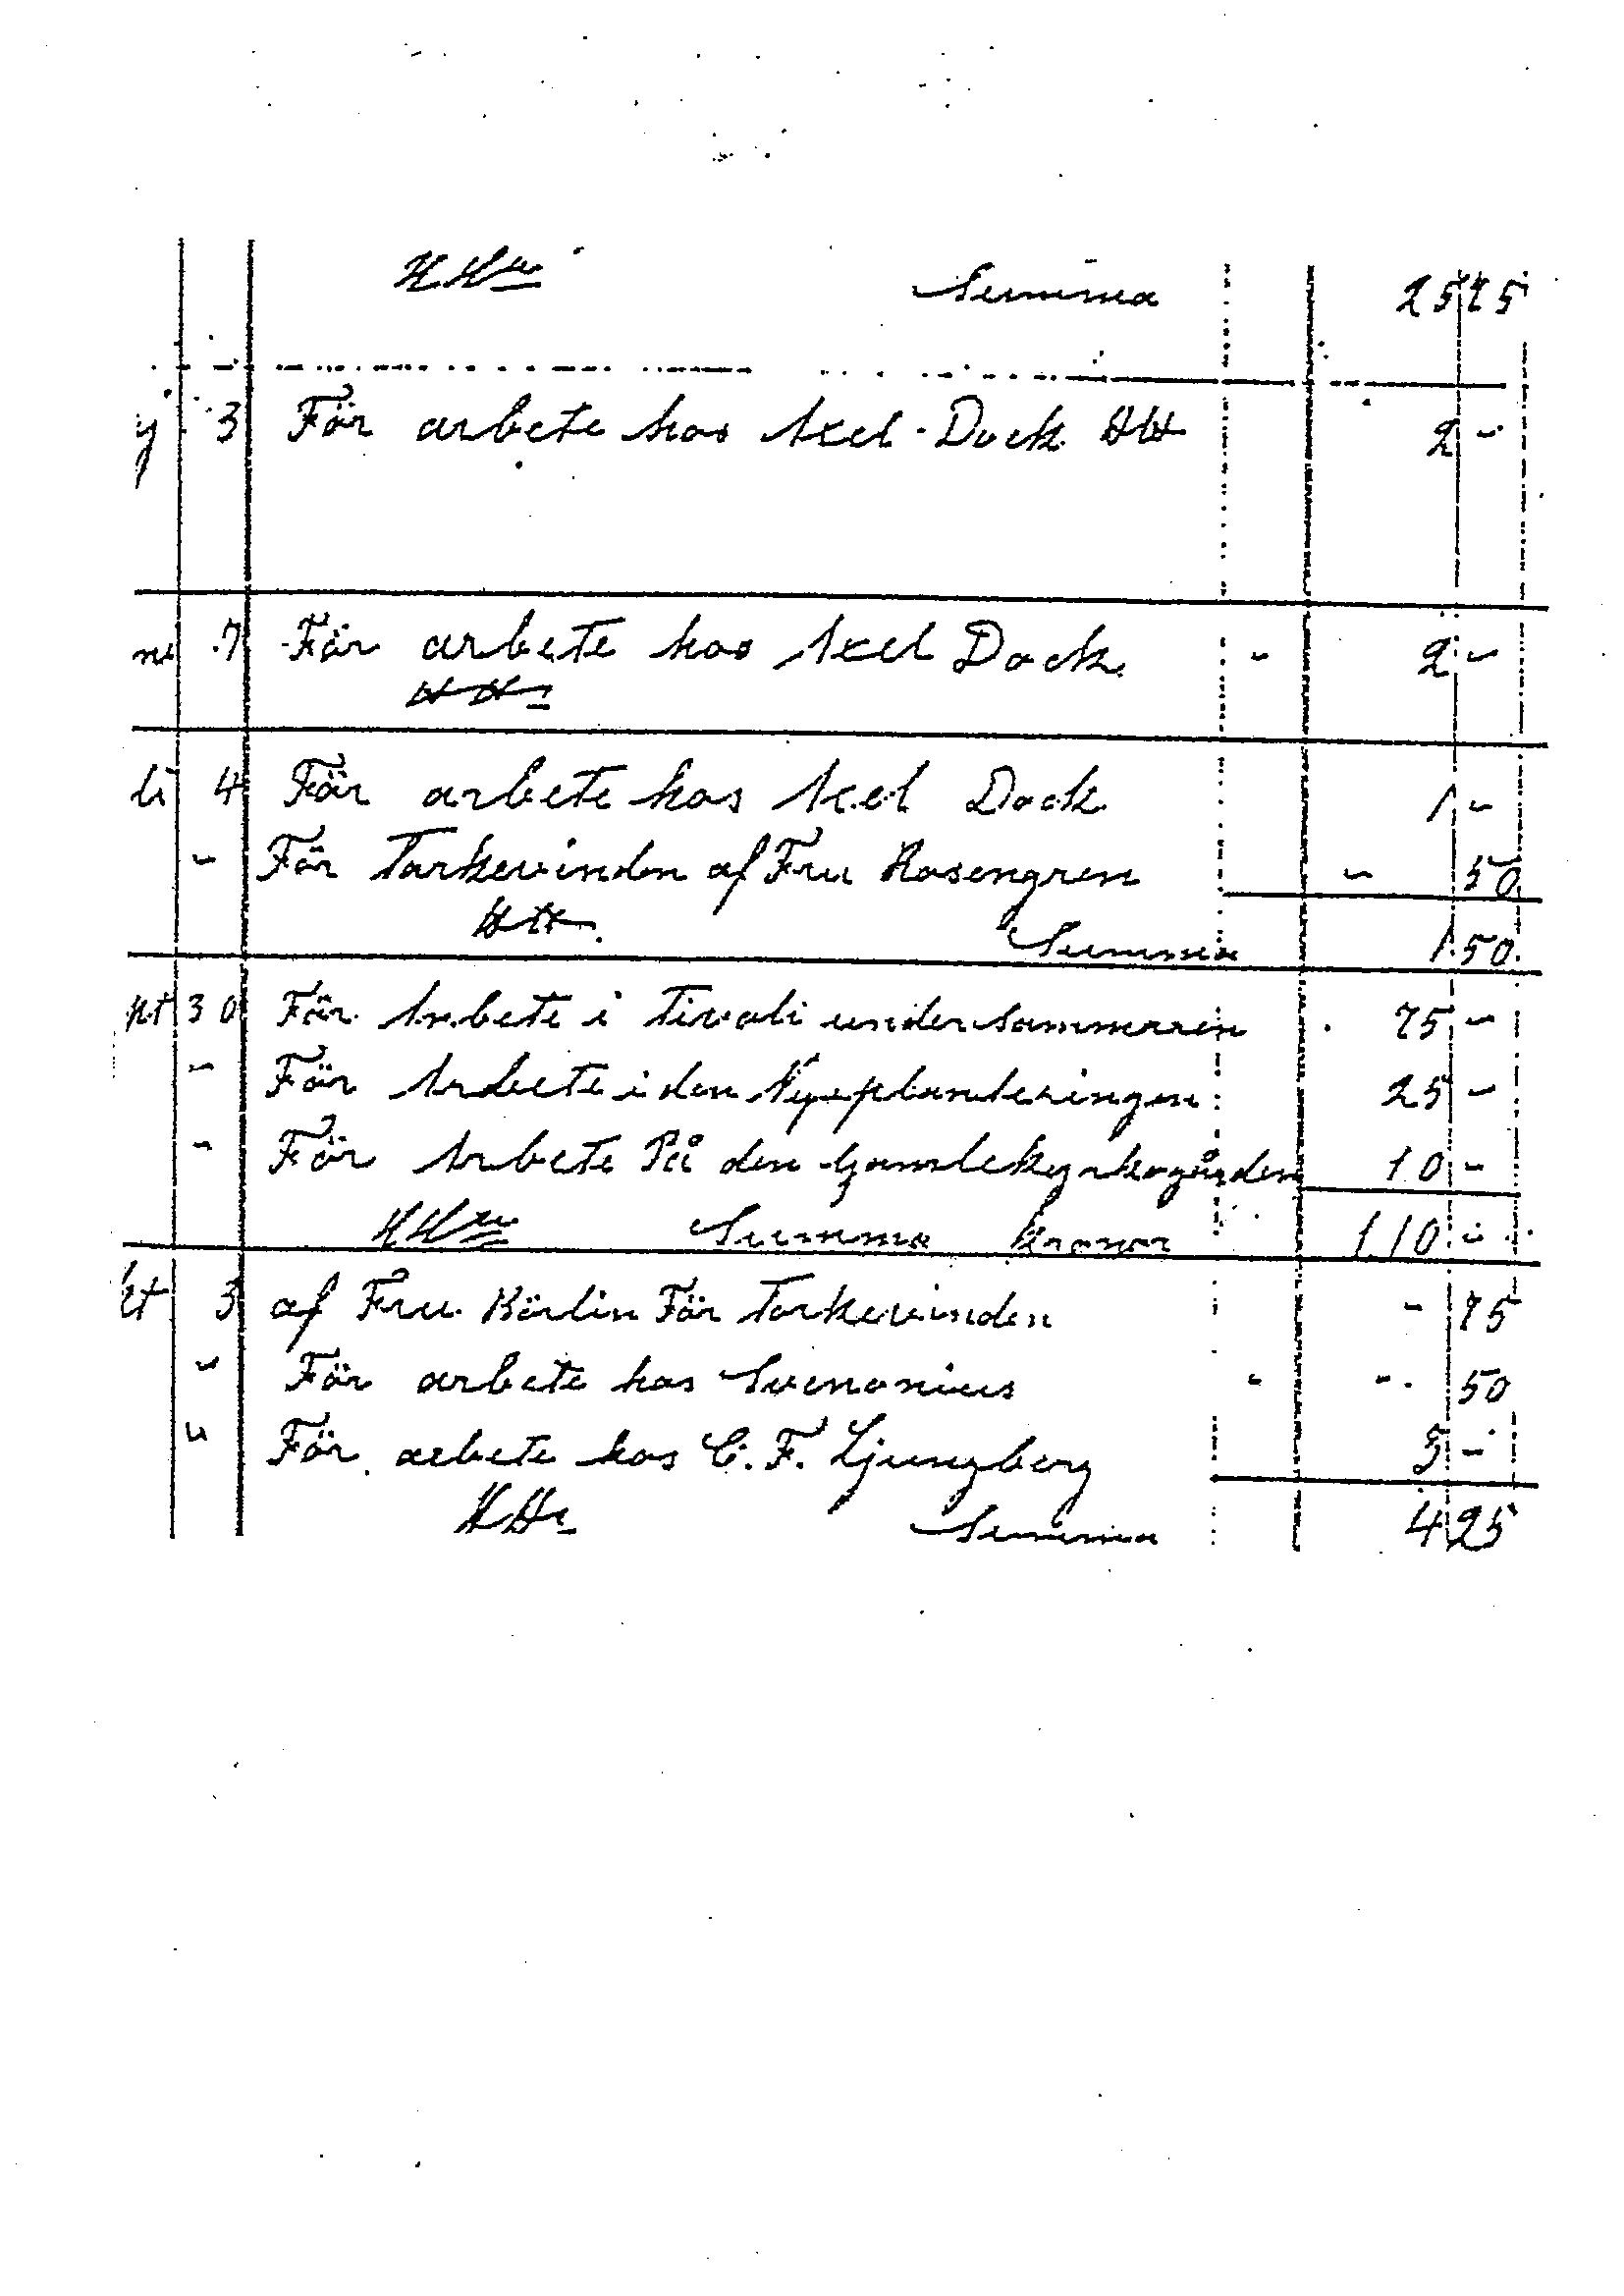 Summa 25 25
j 3 För arbete hos Axel Dock HH 2 -
ni 7 För arbete hos Axel Dock - 2 -
HH
li 4 För arbete hos Axel Dock 1 -
" För Torkevinden af Fru Rosengren - 50
HH. Summa 1.50.
pt 30 För Arbete i Tivoli under sommerren 75 -
" För Arbete i den Nyeplanteringen 25 -
" För Arbete På den Gamlekyrkogården 10 -
Summa kronor 110 -
kt 3 af Fru Börlin För Torkevinden - 75
" För arbete hos Svenonius - - 50
" För arbete hos C. F. Ljungberg 3 -
Summa 4 25